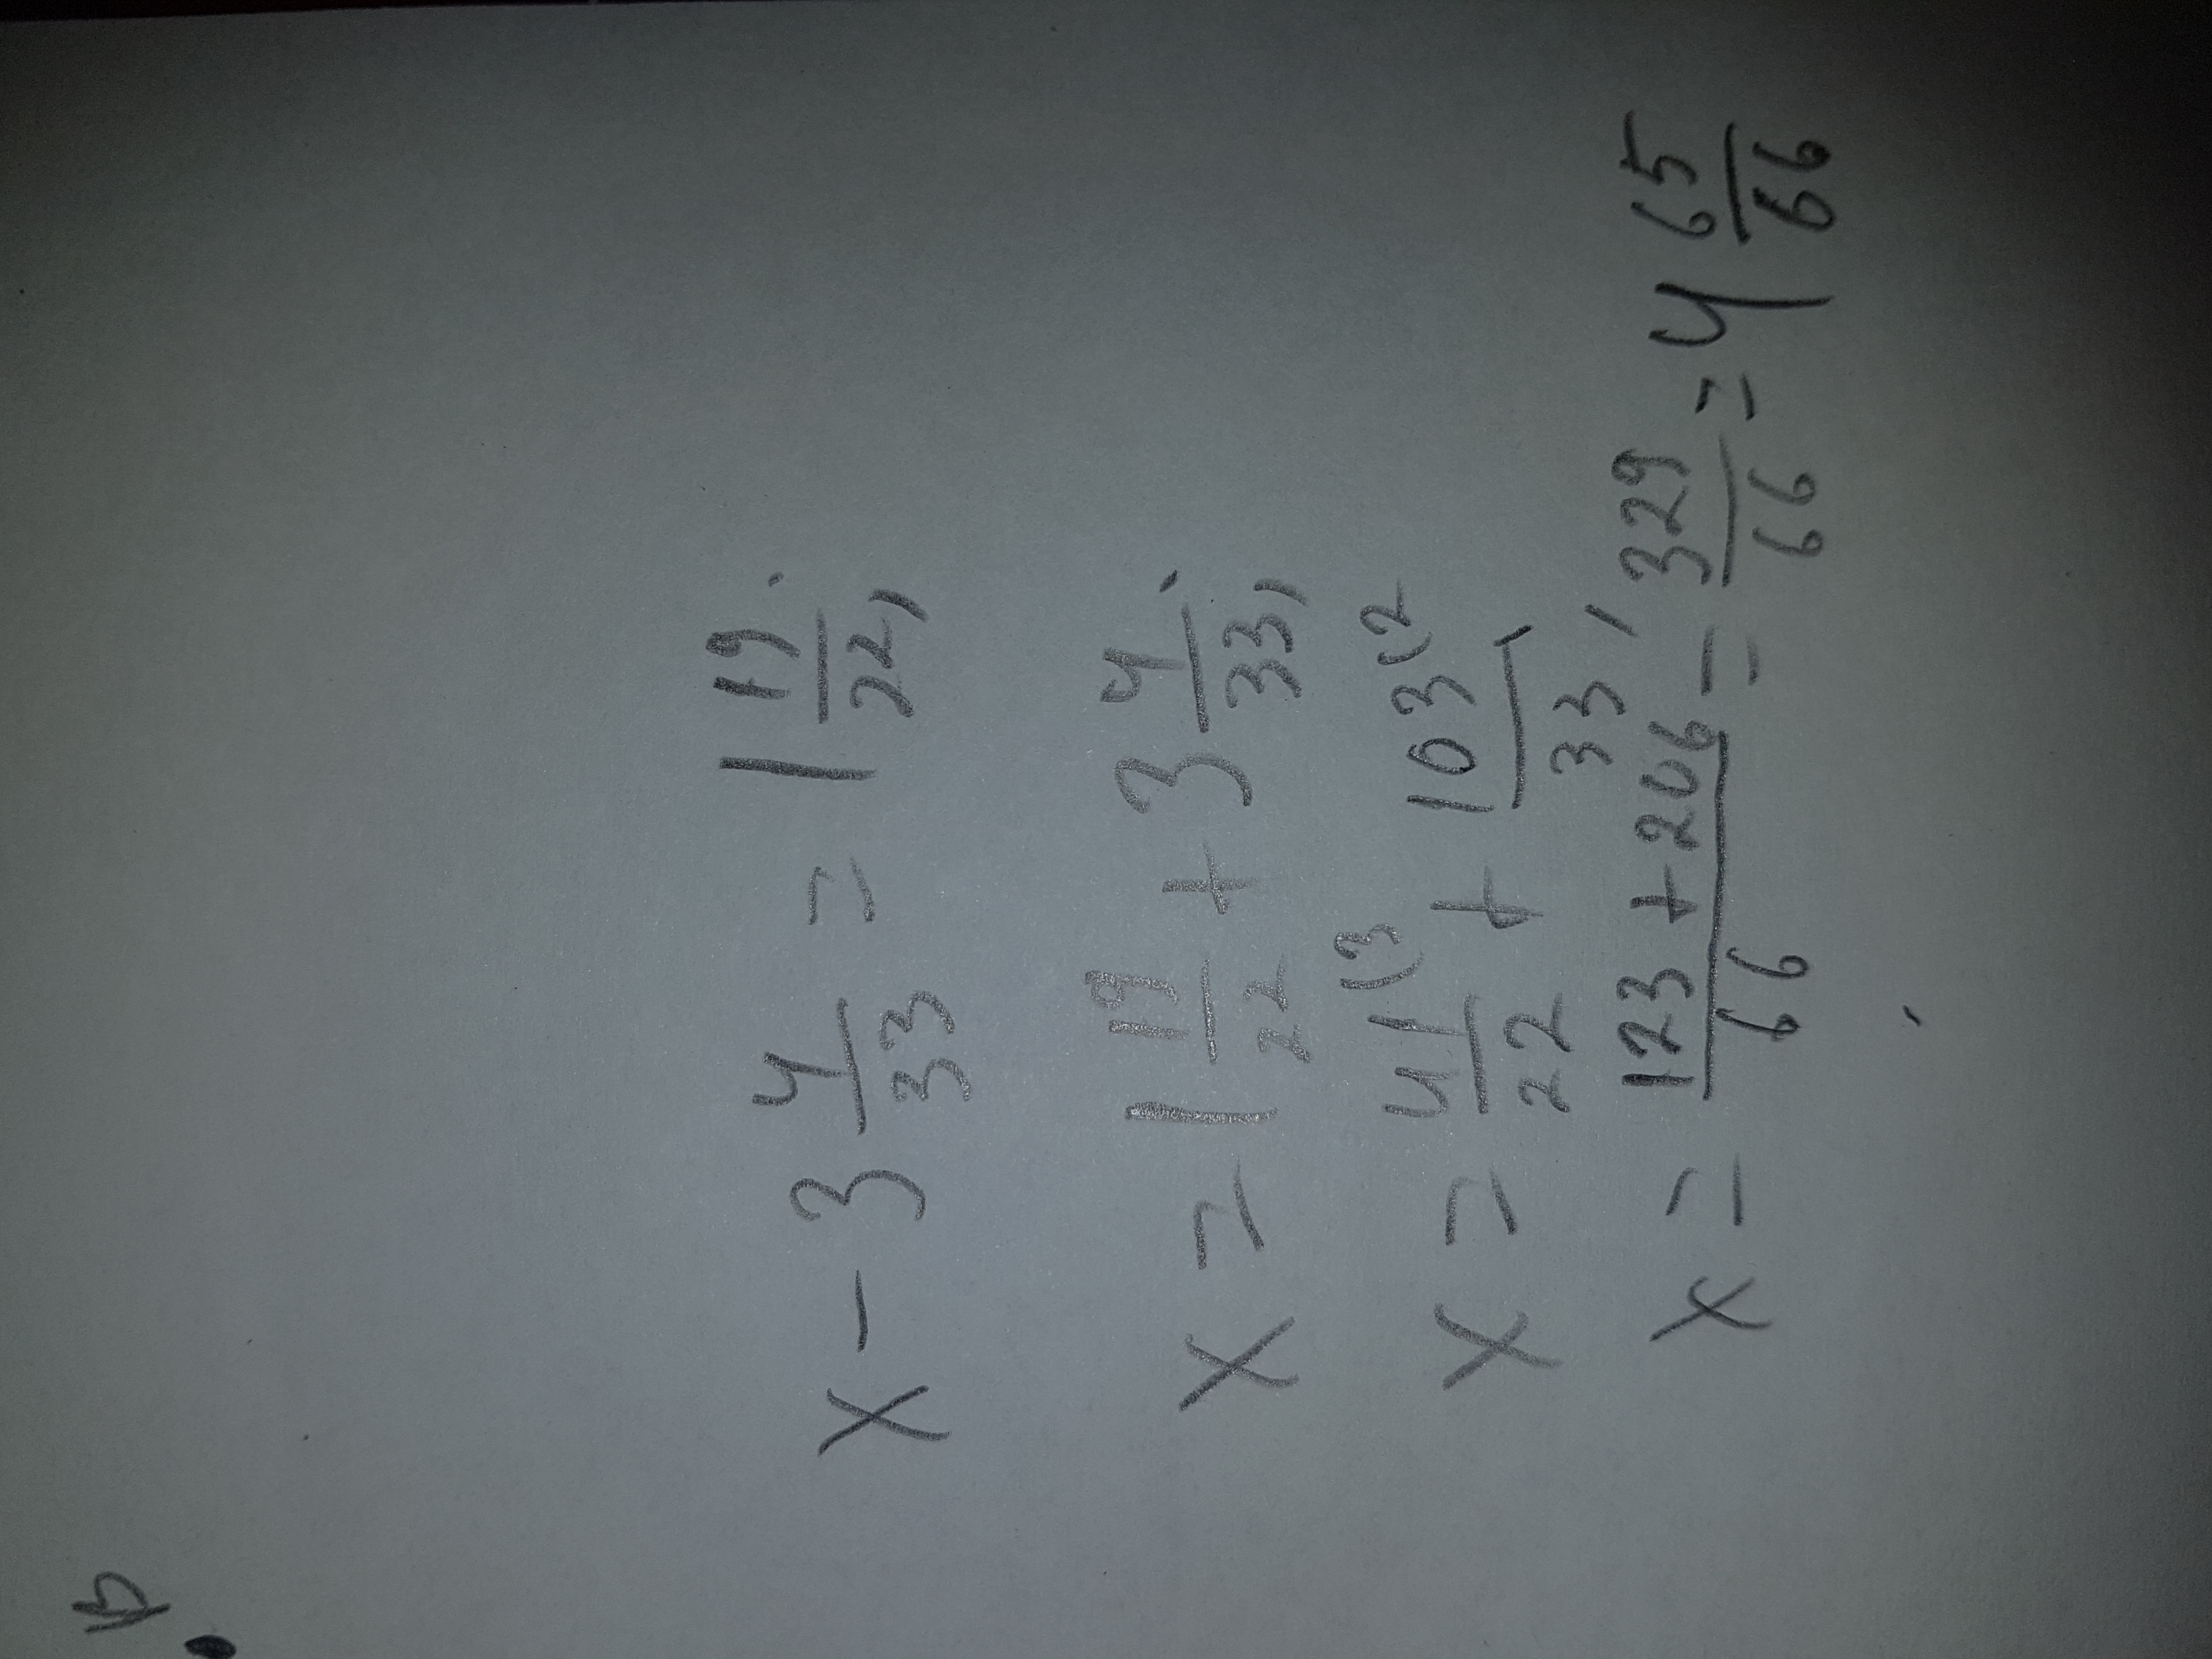 x - 3 4/33 = 1 19/22,
x = 1 19/22 + 3 4/33,
x = 41/22 (3 + 103/33 (2,
x = 123 + 206/66 = 329/66 = 4 65/66